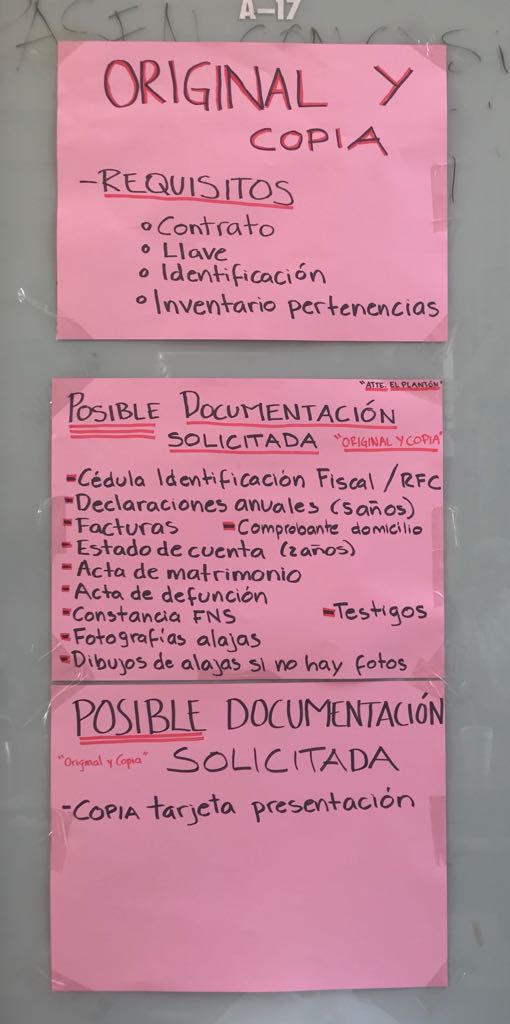 A-17
ORIGINAL Y
COPIA
-REQUISITOS
Contrato
Llave
Identificación
Inventario pertenencias
"ATTE. EL PLANTÓN"
POSIBLE DOCUMENTACIÓN
SOLICITADA "ORIGINAL Y COPIA"
-Cédula Identificación Fiscal /RFC
-Declaraciones anuales (5años)
-Facturas -Comprobante domicilio
-Estado de cuenta (2años)
-Acta de matrimonio
-Acta de defunción
-Constancia FNS -Testigos
-Fotografías alajas
-Dibujos de alajas si no hay fotos
POSIBLE DOCUMENTACIÓN
"Original y Copia" SOLICITADA
-COPIA tarjeta presentación